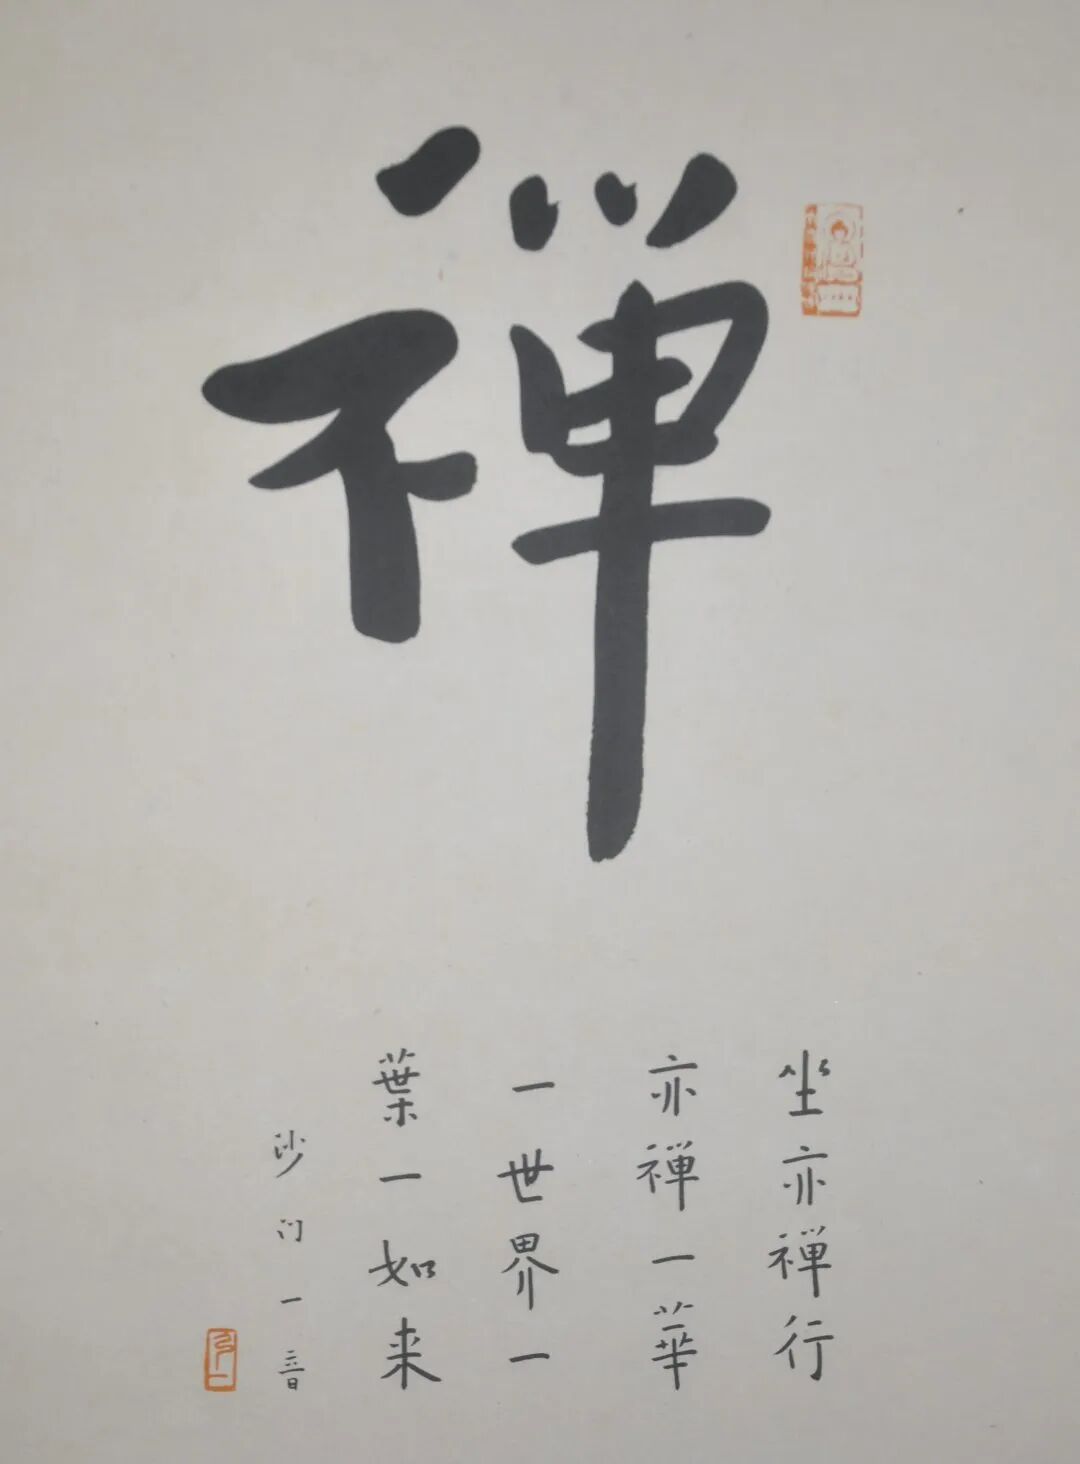 禅
坐亦禅行
亦禅一華
一世界一
葉一如来
沙门一音